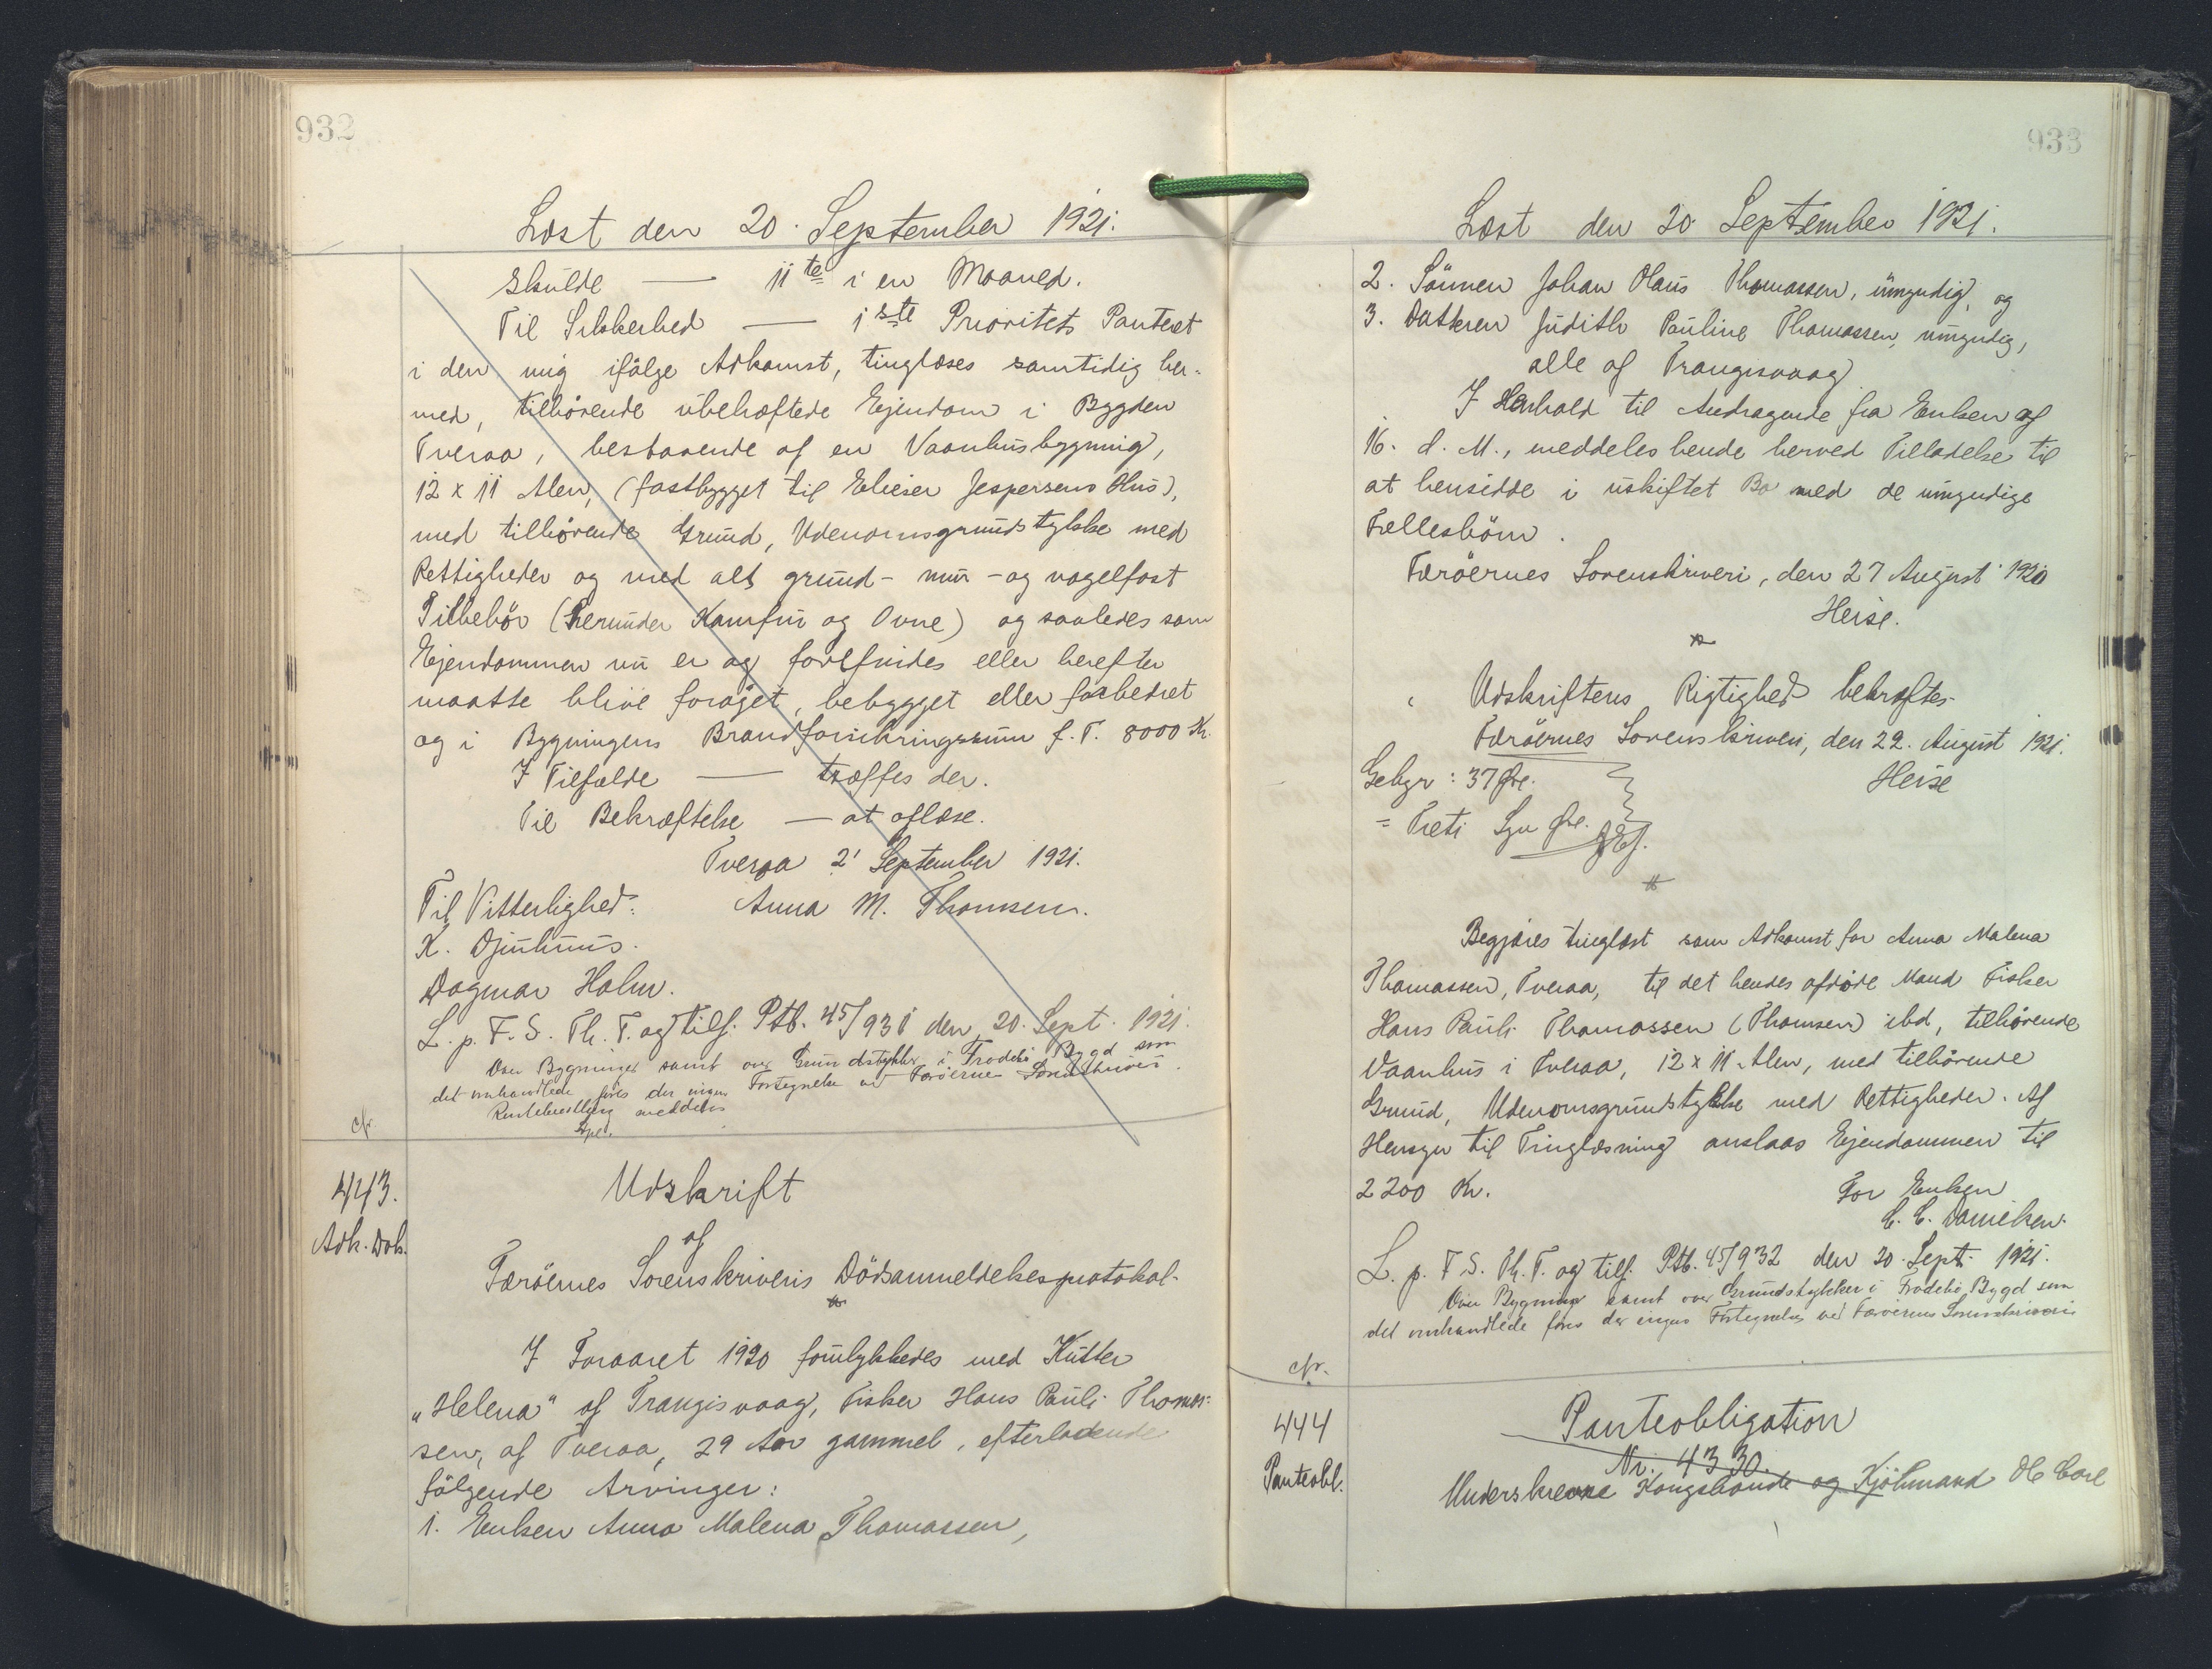 932
Læst den 20. September 1921.
skulde — 11te i en Maaned.
Til Sikkerhed — 1ste Prioritets Panteret
i den mig ifølge Adkomst, tinglæses samtidig her-
med, tilhørende ubehæftede Ejendom i Bygden
Tveraa, bestaaende af en Vaanhusbygning,
12 x 11 Alen, (fastbygget til Elieser Jespersens Hus),
med tilhørende Grund, Udenomsgrundstykke med
Rettigheder og med alt grund- mur- og nagelfast
Tilbehör (herunder Kamfur og Ovne) og saaledes som
Ejendommen nu er og forefindes eller herefter
maatte blive forøget, bebygget eller forbedret
og i Bygningens Brandforsikringssum f. T. 8000 Kr.
I Tilfælde — træffes der.
Til Bekræftelse — at aflæse.
Tveraa 2' September 1921.
Til Vitterlighed: Anna M. Thomsen.
K. Djurhuus.
Dagmar Holm.
L. p. F. S. Th. T. og tilf. Ptb. 45/931 den 20. Sept. 1921.
Over Bygninger samt over Grundstykker i Trødebø Bygd som
det omhandlede föres der ingen Fortegnelse ved Færöernes Sorenskriveri.
meddeles
cfr.
443.
Adk. Dok.
Udskrift
af
Færöernes Sorenskriveris Dödsanmeldelsesprotokol.
I Foraaret 1920 forulykkedes med Kutter
„Helena" af Trangisvaag, Fisker Hans Pauli Thomas-
sen, af Tveraa, 29 Aar gammel, efterladende
følgende Arvinger:
1. Enken Anna Malena Thomassen,
933
Læst den 20 September 1921.
2. Sønnen Johan Olaus Thomassen, umyndig, og
3. Datteren Judith Pauline Thomassen, umyndig,
alle af Trangisvaag
I Henhold til Andragende fra Enken af
16. d. M., meddeles hende herved Tilladelse til
at hensidde i uskiftet Bo med de umyndige
Fællesbörn.
Færöernes Sorenskriveri, den 27 August 1920
Heise.
Udskriftens Rigtighed bekræftes.
Færöernes Sorenskriveri, den 22. August 1921.
Gebyr: 37 Øre. Heise
= Treti Syv Øre.
Begjæres tinglæst som Adkomst for Anna Malena
Thomassen, Tveraa, til det hendes afdøde Mand Fisker
Hans Pauli Thomassen (Thomsen) ibd, tilhørende
Vaanhus i Tveraa, 12 x 11 Alen, med tilhørende
Grund, Udenomsgrundstykke med Rettigheder. Af
Hensyn til Tinglæsning anslaas Ejendommen til
2200 Kr. For Enken
C. C. Danielsen.
L. p. F. S. Th. T. og tilf. Ptb. 45/932 den 20. Sept. 1921.
Over Bygninger samt over Grundstykker i Trødebø Bygd som
det omhandlede føres der ingen Fortegnelse ved Færöernes Sorenskriveri
cfr.
444
Panteobl.
Panteobligation
Nr. 4330.
Underskrevne Kongsbonde og Kjöbmand Ole Carl